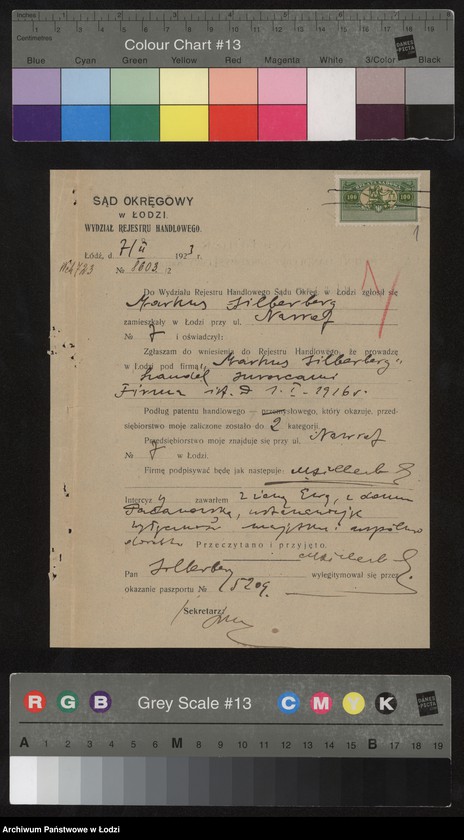 Inches 1 2 3 4 5 6 7 8
Centimetres 1 2 3 4 5 6 7 8 9 10 11 12 13 14 15 16 17 18 19
Colour Chart #13
DANES PICTA .COM
Blue Cyan Green Yellow Red Magenta White 3/Color Black
SĄD OKRĘGOWY
w ŁODZI.
WYDZIAŁ REJESTRU HANDLOWEGO.
100 100
Łódź, d. 7/II 1923 r.
№ 8603
1
Do Wydziału Rejestru Handlowego Sądu Okręg. w Łodzi zgłosił się
Markus Silberberg
zamieszkały w Łodzi przy ul. Nawrot
№ 7 i oświadczył:
Zgłaszam do wniesienia do Rejestru Handlowego, że prowadzę
w Łodzi pod firmą „Markus Silberberg"
handel surowcami
Firma 1. I. 1916 r.
Podług patentu handlowego – przemysłowego, który okazuje, przed-
siębiorstwo moje zaliczone zostało do 2 kategorji.
Przedsiębiorstwo moje znajduje się przy ul. Nawrot
№ 7 w Łodzi.
Firmę podpisywać będę jak następuje:
Intercyzę zawarłem z żoną Ewą, z domu
majątku i wspólność
dorobku Przeczytano i przyjęto.
Pan Silberberg wylegitymował się przez
okazanie paszportu № 15209.
Sekretarz:
R G B Grey Scale #13 C M Y K
DANES PICTA .COM
A 1 2 3 4 5 6 M 8 9 10 11 12 13 14 15 B 17 18 19
Archiwum Państwowe w Łodzi